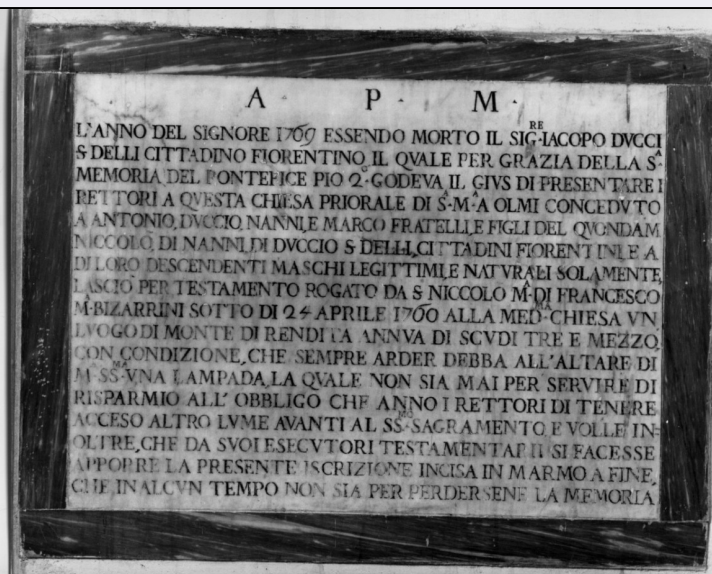 A · P · M ·
L'ANNO DEL SIGNORE 1769 ESSENDO MORTO IL SIG.RE IACOPO DVCCI
S DELLI CITTADINO FIORENTINO, IL QVALE PER GRAZIA DELLA S.A
MEMORIA DEL PONTEFICE PIO 2.º GODEVA IL GIVS DI PRESENTARE I
RETTORI A QVESTA CHIESA PRIORALE DI S.A M.A A OLMI CONCEDVTO
A ANTONIO, DVCCIO, NANNI, E MARCO FRATELLI, E FIGLI DEL QVONDAM
NICCOLO, DI NANNI, DI DVCCIO S DELLI, CITTADINI FIORENTINI, E A
DI LORO DESCENDENTI MASCHI LEGITTIMI, E NATVRALI SOLAMENTE,
LASCIÒ PER TESTAMENTO ROGATO DA S NICCOLO M.A DI FRANCESCO
M.A BIZARRINI SOTTO DI 24 APRILE 1760 ALLA MED.MA CHIESA VN
LVOGO DI MONTE DI RENDITA ANNVA DI SCVDI TRE E MEZZO,
CON CONDIZIONE, CHE SEMPRE ARDER DEBBA ALL'ALTARE DI
M. SS.MA VNA LAMPADA, LA QVALE NON SIA MAI PER SERVIRE DI
RISPARMIO ALL' OBBLIGO CHE ANNO I RETTORI DI TENERE
ACCESO ALTRO LVME AVANTI AL SS.MO SAGRAMENTO, E VOLLE IN=
OLTRE, CHE DA SVOI ESECVTORI TESTAMENTARII SI FACESSE
APPORRE LA PRESENTE ISCRIZIONE INCISA IN MARMO A FINE,
CHE IN ALCVN TEMPO NON SIA PER PERDERSENE LA MEMORIA